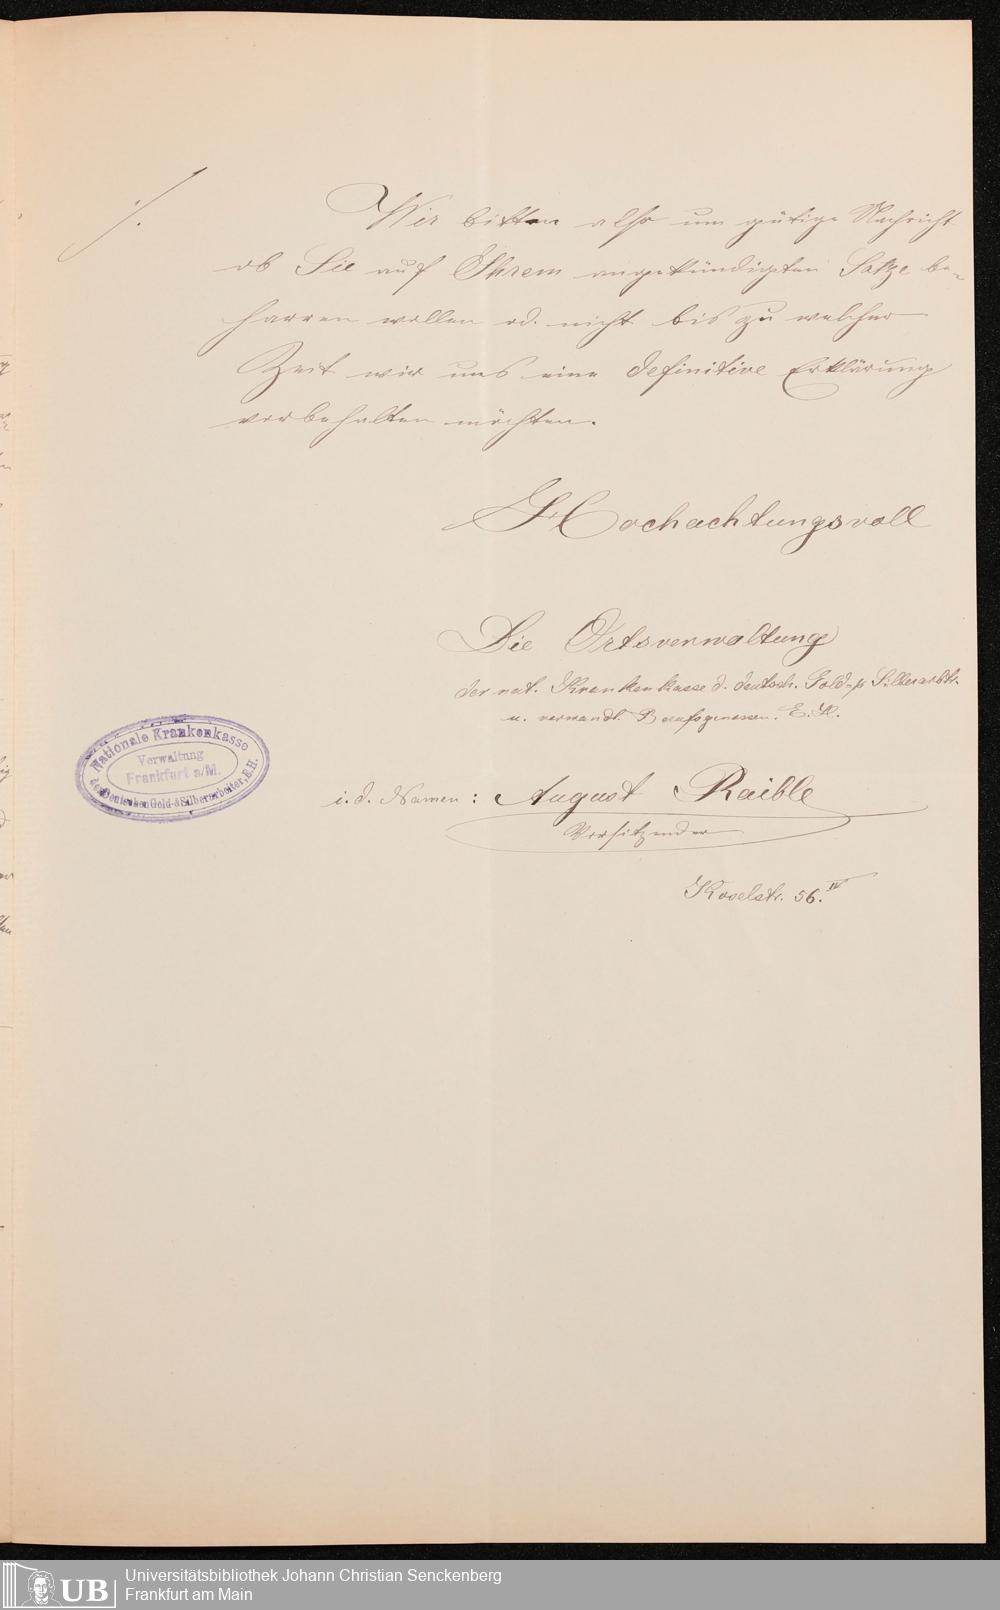 ./.
Wir bitten also um gütige Nachricht
ob Sie auf Ihrem angekündigten Satze be-
harren wollen od. nicht bis zu welcher
Zeit wir uns eine definitive Erklärung
vorbehalten möchten.
Hochachtungsvoll
Die Ortsverwaltung
der nat. Krankenkasse d. deutsch. Gold- & Silberarbtr.
u. verwandt. Berufsgenossen. E. H.
Nationale Krankenkasse
Verwaltung
Frankfurt a/M.
der Deutschen Gold- & Silberarbeiter, E.H.
i. d. Namen: August Raible
Vorsitzender
Koselstr. 56. IV
UB Universitätsbibliothek Johann Christian Senckenberg
Frankfurt am Main